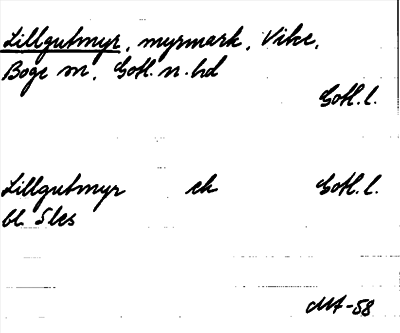 Lillgutmyr, myrmark, Vike,
Boge sn, Gotl. n. hd
Gotl. l.
Lillgutmyr ek Gotl. l.
bl. 5
MA-58